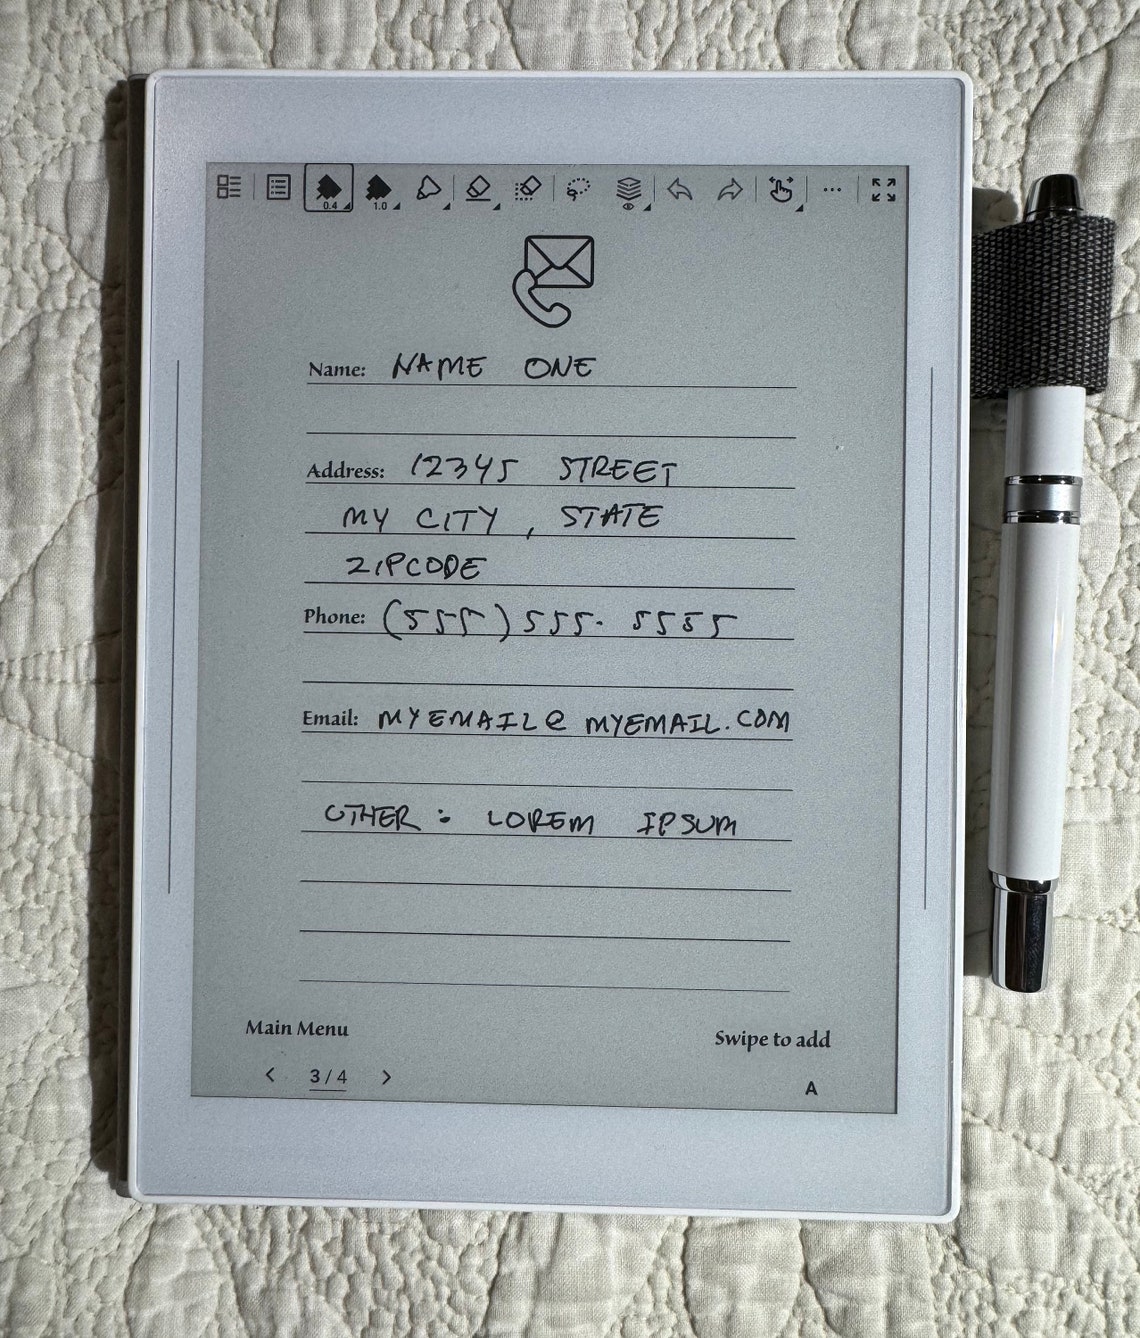 0.4 1.0
Name: NAME ONE
Address: 12345 STREET
MY CITY, STATE
ZIPCODE
Phone: (555) 555. 5555
Email: MYEMAIL@MYEMAIL.COM
OTHER: LOREM IPSUM
Main Menu
Swipe to add
< 3/4 >
A